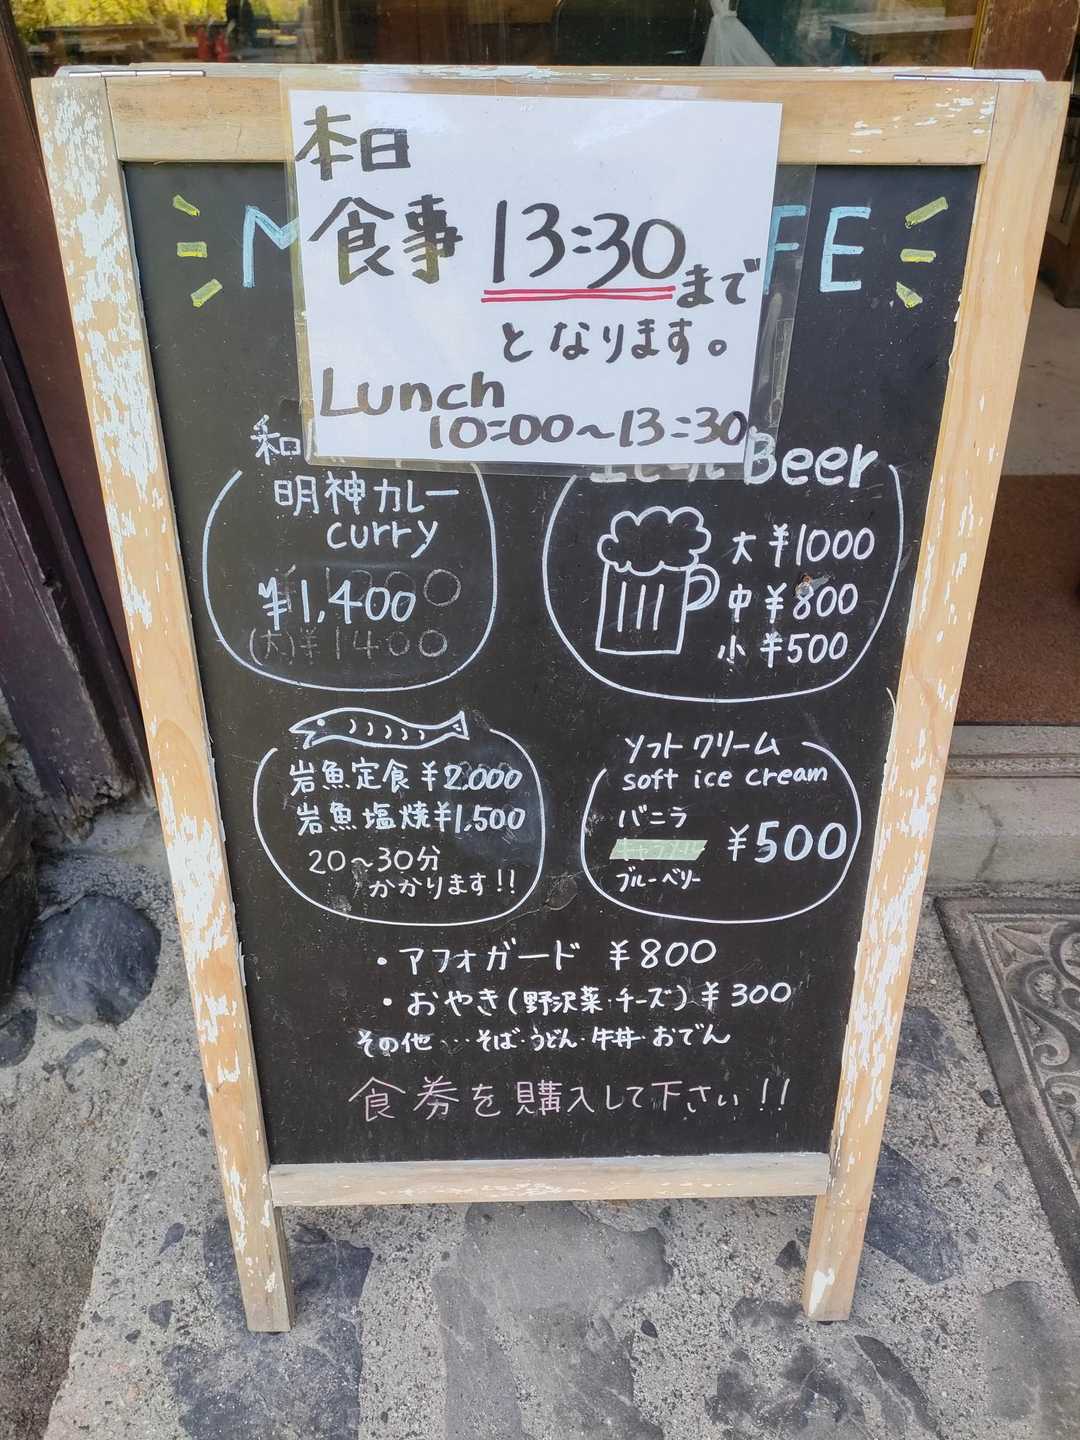 本日
食事 13:30まで
となります。
Lunch
10:00～13:30
M FE
和
明神カレー
curry
¥1,400
(大)¥1400
Beer
大 ¥1000
中 ¥800
小 ¥500
岩魚定食¥2,000
岩魚塩焼¥1,500
20～30分
かかります!!
ソフトクリーム
soft ice cream
バニラ
キャラメル
ブルーベリー
¥500
・アフォガード ¥800
・おやき(野沢菜・チーズ)¥300
その他…そば・うどん・牛丼・おでん
食券を購入して下さい!!